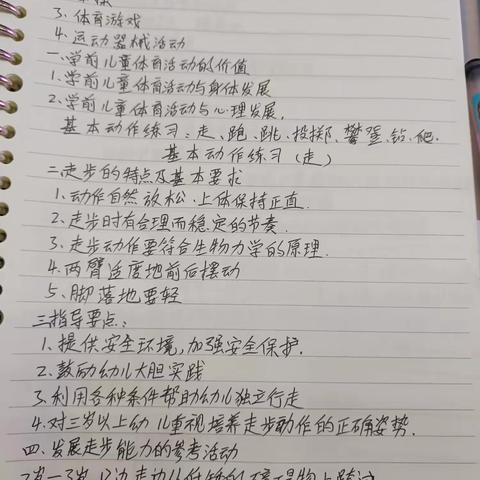 3. 体育游戏
4. 运动器械活动
一、学前儿童体育活动的价值
1. 学前儿童体育活动与身体发展
2. 学前儿童体育活动与心理发展.
基本动作练习:走、跑、跳、投掷、攀登、钻、爬.
基本动作练习(走)
二、走步的特点及基本要求
1. 动作自然放松、上体保持正直.
2. 走步时有合理而稳定的节奏.
3. 走步动作要符合生物力学的原理.
4. 两臂适度地前后摆动
5、脚落地要轻
三、指导要点:
1. 提供安全环境,加强安全保护.
2. 鼓励幼儿大胆实践
3. 利用各种条件帮助幼儿独立行走
4. 对三岁以上幼儿重视培养走步动作的正确姿势.
四、发展走步能力的参考活动